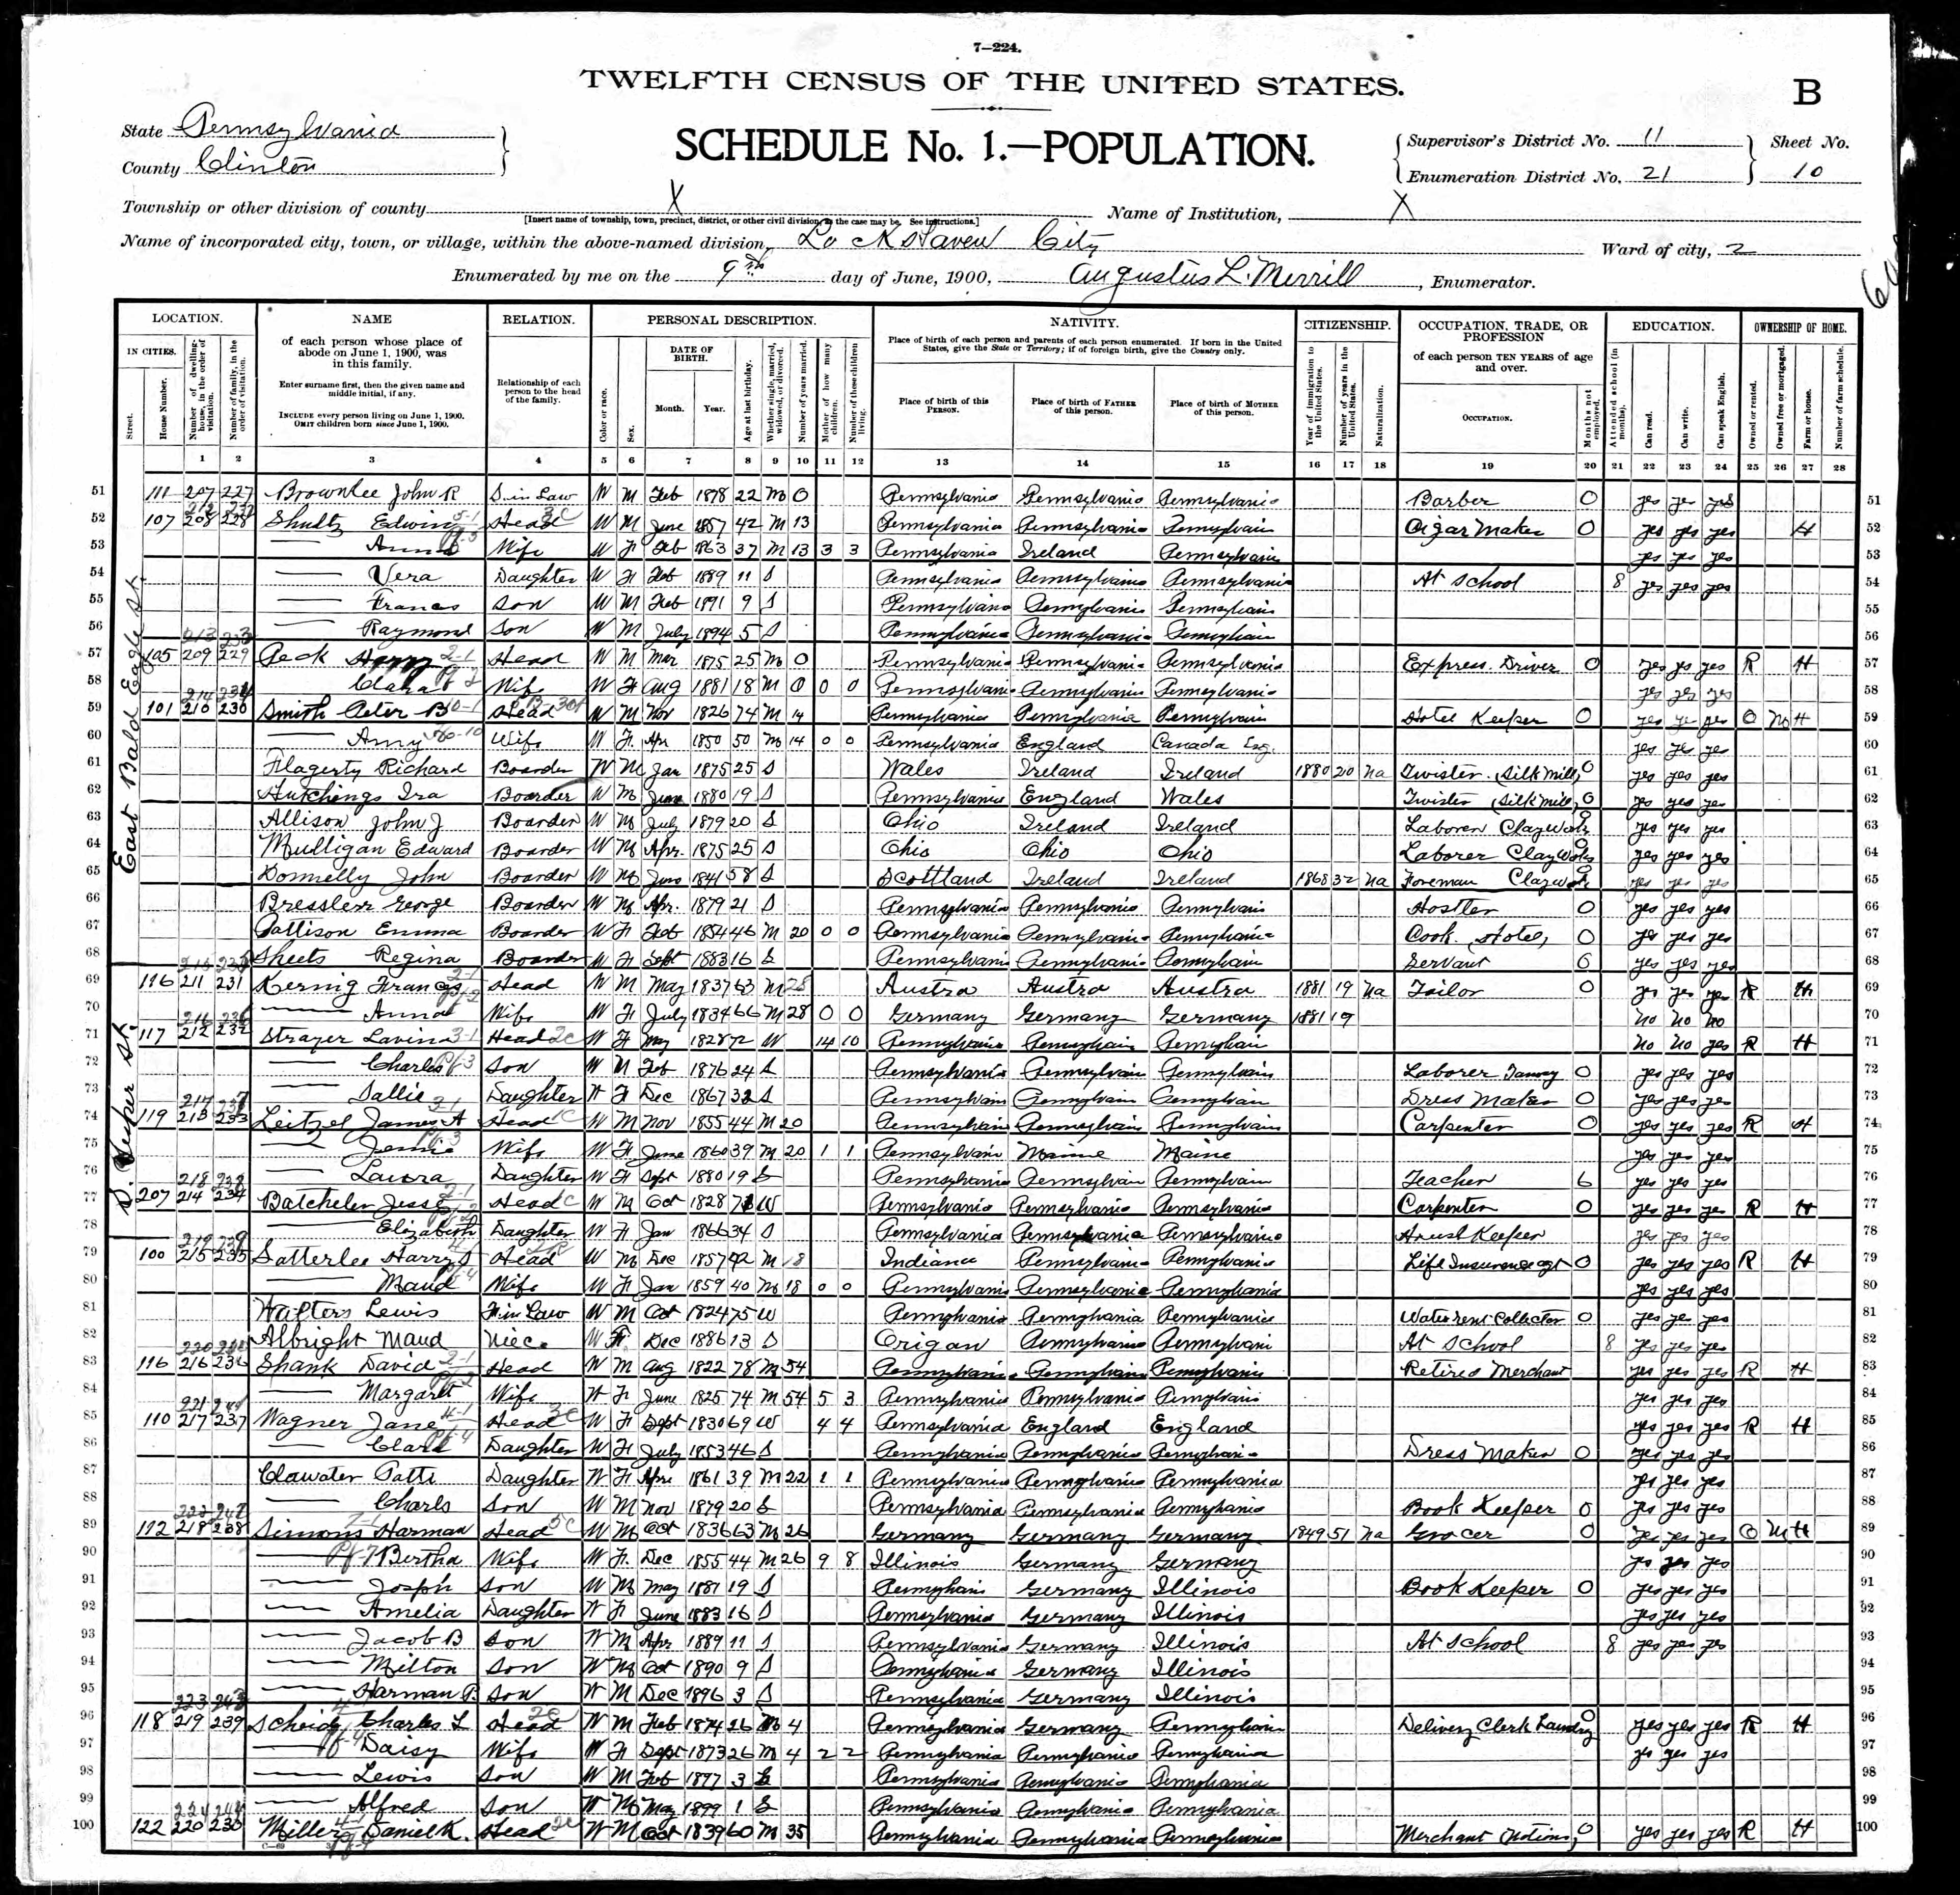 7—224.
TWELFTH CENSUS OF THE UNITED STATES.
B
State Pennsylvania
County Clinton
SCHEDULE No. 1.—POPULATION.
Supervisor's District No. 11
Enumeration District No. 21
Sheet No. 10
Township or other division of county X
[Insert name of township, town, precinct, district, or other civil division, as the case may be. See instructions.]
Name of Institution, X
Name of incorporated city, town, or village, within the above-named division, Lock Haven City
Ward of city, 2
Enumerated by me on the 9th day of June, 1900, Augustus L. Merrill, Enumerator.
LOCATION. NAME RELATION. PERSONAL DESCRIPTION. NATIVITY. CITIZENSHIP. OCCUPATION, TRADE, OR PROFESSION EDUCATION. OWNERSHIP OF HOME.
IN CITIES.
Street.
House Number.
Number of dwelling-house, in the order of visitation.
Number of family, in the order of visitation.
of each person whose place of abode on June 1, 1900, was in this family.
Enter surname first, then the given name and middle initial, if any.
INCLUDE every person living on June 1, 1900. OMIT children born since June 1, 1900.
Relationship of each person to the head of the family.
Color or race.
Sex.
DATE OF BIRTH.
Month. Year.
Age at last birthday.
Whether single, married, widowed, or divorced.
Number of years married.
Mother of how many children.
Number of these children living.
Place of birth of each person and parents of each person enumerated. If born in the United States, give the State or Territory; if of foreign birth, give the Country only.
Place of birth of this PERSON.
Place of birth of FATHER of this person.
Place of birth of MOTHER of this person.
Year of immigration to the United States.
Number of years in the United States.
Naturalization.
of each person TEN YEARS of age and over.
OCCUPATION.
Months not employed.
Attended school (in months).
Can read.
Can write.
Can speak English.
Owned or rented.
Owned free or mortgaged.
Farm or house.
Number of farm schedule.
1 2 3 4 5 6 7 8 9 10 11 12 13 14 15 16 17 18 19 20 21 22 23 24 25 26 27 28
East Bald Eagle St.
51 111 207 227 Brownlee John R S in Law W M Feb 1878 22 M 0 Pennsylvania Pennsylvania Pennsylvania Barber 0 yes yes yes 51
52 107 208 228 Shultz Edwin Head W M June 1857 42 M 13 Pennsylvania Pennsylvania Pennsylvain Cigar Maker 0 yes yes yes H 52
53 Anna Wife W F Feb 1863 37 M 13 3 3 Pennsylvania Ireland Pennsylvania yes yes yes 53
54 Vera Daughter W F Feb 1889 11 S Pennsylvania Pennsylvania Pennsylvania At School 8 yes yes yes 54
55 Francis Son W M Feb 1891 9 S Pennsylvania Pennsylvania Pennsylvain 55
56 Raymond Son W M July 1894 5 S Pennsylvania Pennsylvania Pennsylvain 56
57 105 209 229 Peck Harry Head W M Mar 1875 25 M 0 Pennsylvania Pennsylvania Pennsylvania Express Driver 0 yes yes yes R H 57
58 Clara Wife W F Aug 1881 18 M 0 0 0 Pennsylvania Pennsylvania Pennsylvania yes yes yes 58
59 101 210 230 Smith Peter B Head W M Nov 1826 74 M 14 Pennsylvania Pennsylvania Pennsylvain Hotel Keeper 0 yes yes yes O M H 59
60 Amy Wife W F Apr 1850 50 M 14 0 0 Pennsylvania England Canada Eng. yes yes yes 60
61 Flagerty Richard Boarder W M Jan 1875 25 S Wales Ireland Ireland 1880 20 Na Twister (Silk Mill) 0 yes yes yes 61
62 Hutchings Ira Boarder W M June 1880 19 S Pennsylvania England Wales Twister (Silk Mill) 0 yes yes yes 62
63 Allison John J Boarder W M July 1879 20 S Ohio Ireland Ireland Laborer Clay Works 0 yes yes yes 63
64 Mulligan Edward Boarder W M Apr. 1875 25 S Ohio Ohio Ohio Laborer Clay Works 0 yes yes yes 64
65 Donnelly John Boarder W M June 1841 58 S Scottland Ireland Ireland 1868 32 Na Foreman Clay Works 0 yes yes yes 65
66 Bressler George Boarder W M Apr. 1879 21 S Pennsylvania Pennsylvania Pennsylvania Hostler 0 yes yes yes 66
67 Pattison Emma Boarder W F Feb 1854 46 M 20 0 0 Pennsylvania Pennsylvania Pennsylvania Cook (Hotel) 0 yes yes yes 67
68 Sheets Regina Boarder W F Sept 1883 16 S Pennsylvania Pennsylvania Pennsylvain Servant 6 yes yes yes 68
S. Vesper St.
69 116 211 231 Kernig Francis Head W M May 1837 63 M 28 Austra Austra Austra 1881 19 Na Tailor 0 yes yes yes R H 69
70 Anna Wife W F July 1834 66 M 28 0 0 Germany Germany Germany 1881 19 No No No 70
71 117 212 232 Strayer Lavina Head W F May 1828 72 W 14 10 Pennsylvania Pennsylvain Pennsylvain No No yes R H 71
72 Charles Son W M Feb 1876 24 S Pennsylvania Pennsylvain Pennsylvain Laborer Tannery 0 yes yes yes 72
73 Sallie Daughter W F Dec 1867 32 S Pennsylvain Pennsylvain Pennsylvain Dress Maker 0 yes yes yes 73
74 119 213 233 Leitzel James A Head W M Nov 1855 44 M 20 Pennsylvania Pennsylvania Pennsylvain Carpenter 0 yes yes yes R H 74
75 Jennie Wife W F June 1860 39 M 20 1 1 Pennsylvania Maine Maine yes yes yes 75
76 Laura Daughter W F Sept 1880 19 S Pennsylvania Pennsylvain Pennsylvain Teacher 6 yes yes yes 76
77 207 214 234 Batcheler Jesse Head W M Oct 1828 71 W Pennsylvania Pennsylvania Pennsylvania Carpenter 0 yes yes yes R H 77
78 Elizabeth Daughter W F Jan 1866 34 S Pennsylvania Pennsylvania Pennsylvania House Keeper yes yes yes 78
79 100 215 235 Satterlee Harry S Head W M Dec 1857 42 M 18 Indiana Pennsylvania Pennsylvania Life Insurance agt 0 yes yes yes R H 79
80 Maud Wife W F Jan 1859 40 M 18 0 0 Pennsylvania Pennsylvania Pennsylvania yes yes yes 80
81 Walters Lewis F in Law W M Oct 1824 75 W Pennsylvania Pennsylvania Pennsylvania Water rent Collector 0 yes yes yes 81
82 Albright Maud Niece W F Dec 1886 13 S Origan Pennsylvania Pennsylvani At School 8 yes yes yes 82
83 116 216 236 Shank David Head W M Aug 1822 78 M 54 Pennsylvania Pennsylvania Pennsylvania Retired Merchant yes yes yes R H 83
84 Margaret Wife W F June 1825 74 M 54 5 3 Pennsylvania Pennsylvania Pennsylvania yes yes yes 84
85 110 217 237 Wagner Jane Head W F Sept 1830 69 W 4 4 Pennsylvania England England yes yes yes R H 85
86 Clara Daughter W F July 1853 46 S Pennsylvania Pennsylvania Pennsylvania Dress Maker 0 yes yes yes 86
87 Clawater Patti Daughter W F Apr 1861 39 M 22 1 1 Pennsylvania Pennsylvania Pennsylvania yes yes yes 87
88 Charls Son W M Nov 1879 20 S Pennsylvania Pennsylvania Pennsylvania Book Keeper 0 yes yes yes 88
89 112 218 238 Simons Harman Head W M Oct 1836 63 M 26 Germany Germany Germany 1849 51 Na Grocer 0 yes yes yes O M H 89
90 Bertha Wife W F Dec 1855 44 M 26 9 8 Illinois Germany Germany yes yes yes 90
91 Joseph Son W M May 1881 19 S Pennsylvania Germany Illinois Book Keeper 0 yes yes yes 91
92 Amelia Daughter W F June 1883 16 S Pennsylvania Germany Illinois yes yes yes 92
93 Jacob B Son W M Apr 1889 11 S Pennsylvania Germany Illinois At School 8 yes yes yes 93
94 Milton Son W M Oct 1890 9 S Pennsylvania Germany Illinois 94
95 Harman B. Son W M Dec 1896 3 S Pennsylvania Germany Illinois 95
96 118 219 239 Scheid Charles L Head W M Feb 1874 26 M 4 Pennsylvania Germany Pennsylvain Delivery Clerk Laundry 0 yes yes yes R H 96
97 Daisy Wife W F Sept 1873 26 M 4 2 2 Pennsylvania Pennsylvania Pennsylvania yes yes yes 97
98 Lewis Son W M Feb 1897 3 S Pennsylvania Pennsylvania Pennsylvania 98
99 Alfred Son W M May 1899 1 S Pennsylvania Pennsylvania Pennsylvania 99
100 122 220 230 Miller Daniel K. Head W M Oct 1839 60 M 35 Pennsylvania Pennsylvania Pennsylvania Merchant (Notions) 0 yes yes yes R H 100